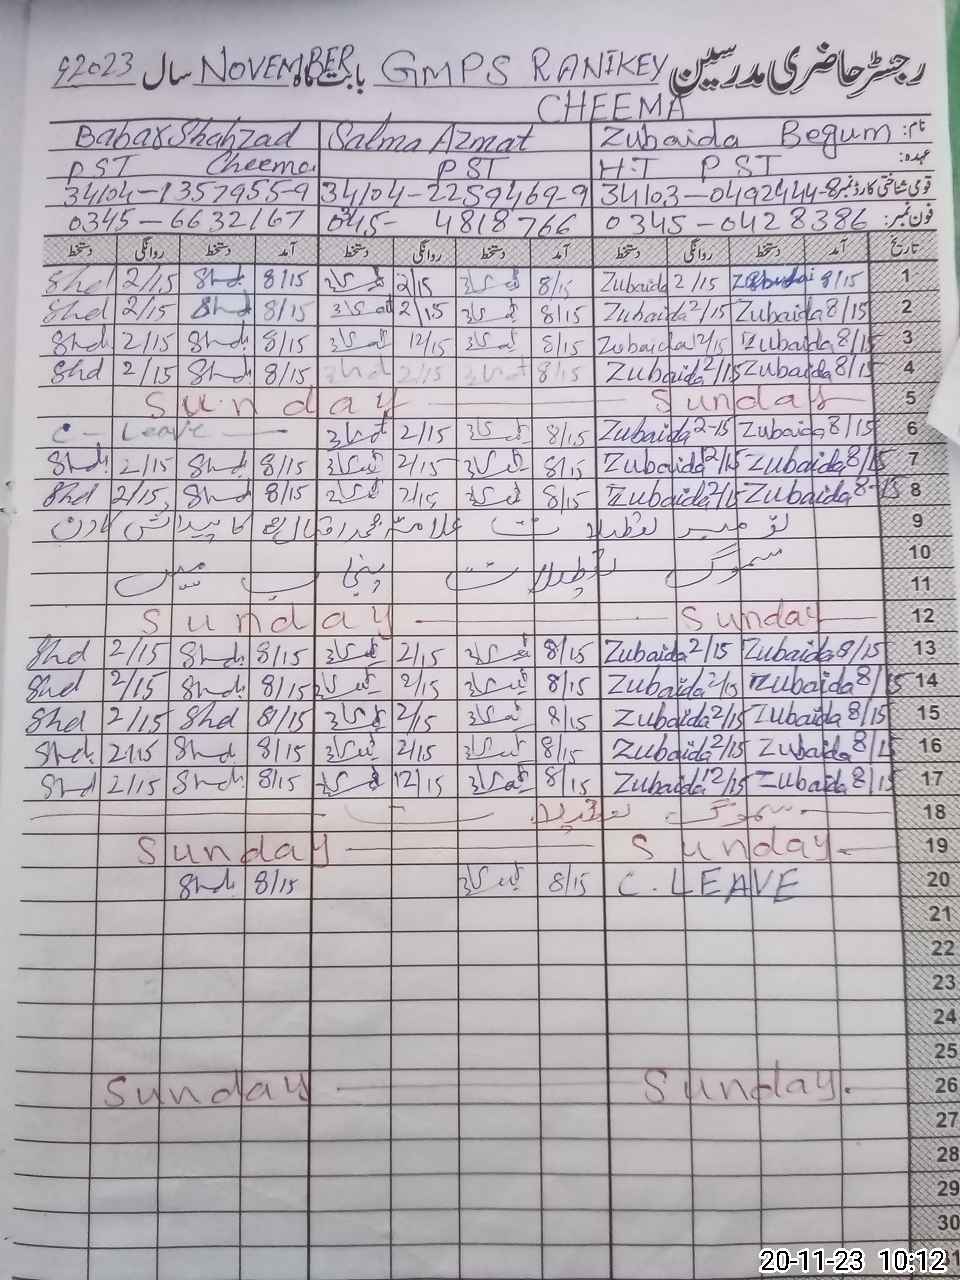 رجسٹر حاضری مدرسین GMPS RANIKEY CHEEMA بابت ماہ NOVEMBER سال 2023ء
نام: Zubaida Begum Salma Azmat Babar Shahzad Cheema
عہدہ: H.T PST PST PST
قومی شناختی کارڈ نمبر 34103-0492444-8 34104-2259469-9 34104-1357955-9
فون نمبر: 0345-0428386 0345-4818766 0345-6632167
تاریخ آمد دستخط روانگی دستخط آمد دستخط روانگی دستخط آمد دستخط روانگی دستخط
1 8/15 Zubaida 2/15 Zubaida 8/15 2/15 8/15 Shd 2/15 Shd
2 8/15 Zubaida 2/15 Zubaida 8/15 2/15 8/15 Shd 2/15 Shd
3 8/15 Zubaida 2/15 Zubaida 8/15 12/15 8/15 Shd 2/15 Shd
4 8/15 Zubaida 2/15 Zubaida 8/15 2/15 8/15 Shd 2/15 Shd
5 Sunday Sunday
6 8/15 Zubaida 2-15 Zubaida 8/15 2/15 C-Leave
7 8/15 Zubaida 2/15 Zubaida 8/15 2/15 8/15 Shd 2/15 Shd
8 8-15 Zubaida 2/15 Zubaida 8/15 2/15 8/15 Shd 2/15 Shd
9 نومبر تعطیلات علامہ محمد اقبال کا پیدائش کا دن
10 سموگ تعطیلات پنجاب میں
11
12 Sunday Sunday
13 8/15 Zubaida 2/15 Zubaida 8/15 2/15 8/15 Shd 2/15 Shd
14 8/15 Zubaida 2/15 Zubaida 8/15 2/15 8/15 Shd 2/15 Shd
15 8/15 Zubaida 2/15 Zubaida 8/15 2/15 8/15 Shd 2/15 Shd
16 8/15 Zubaida 2/15 Zubaida 8/15 2/15 8/15 Shd 2/15 Shd
17 8/15 Zubaida 12/15 Zubaida 8/15 12/15 8/15 Shd 2/15 Shd
18 سموگ تعطیلات
19 Sunday Sunday
20 C. LEAVE 8/15 8/15 Shd
21
22
23
24
25
26 Sunday Sunday
27
28
29
30
31
20-11-23 10:12